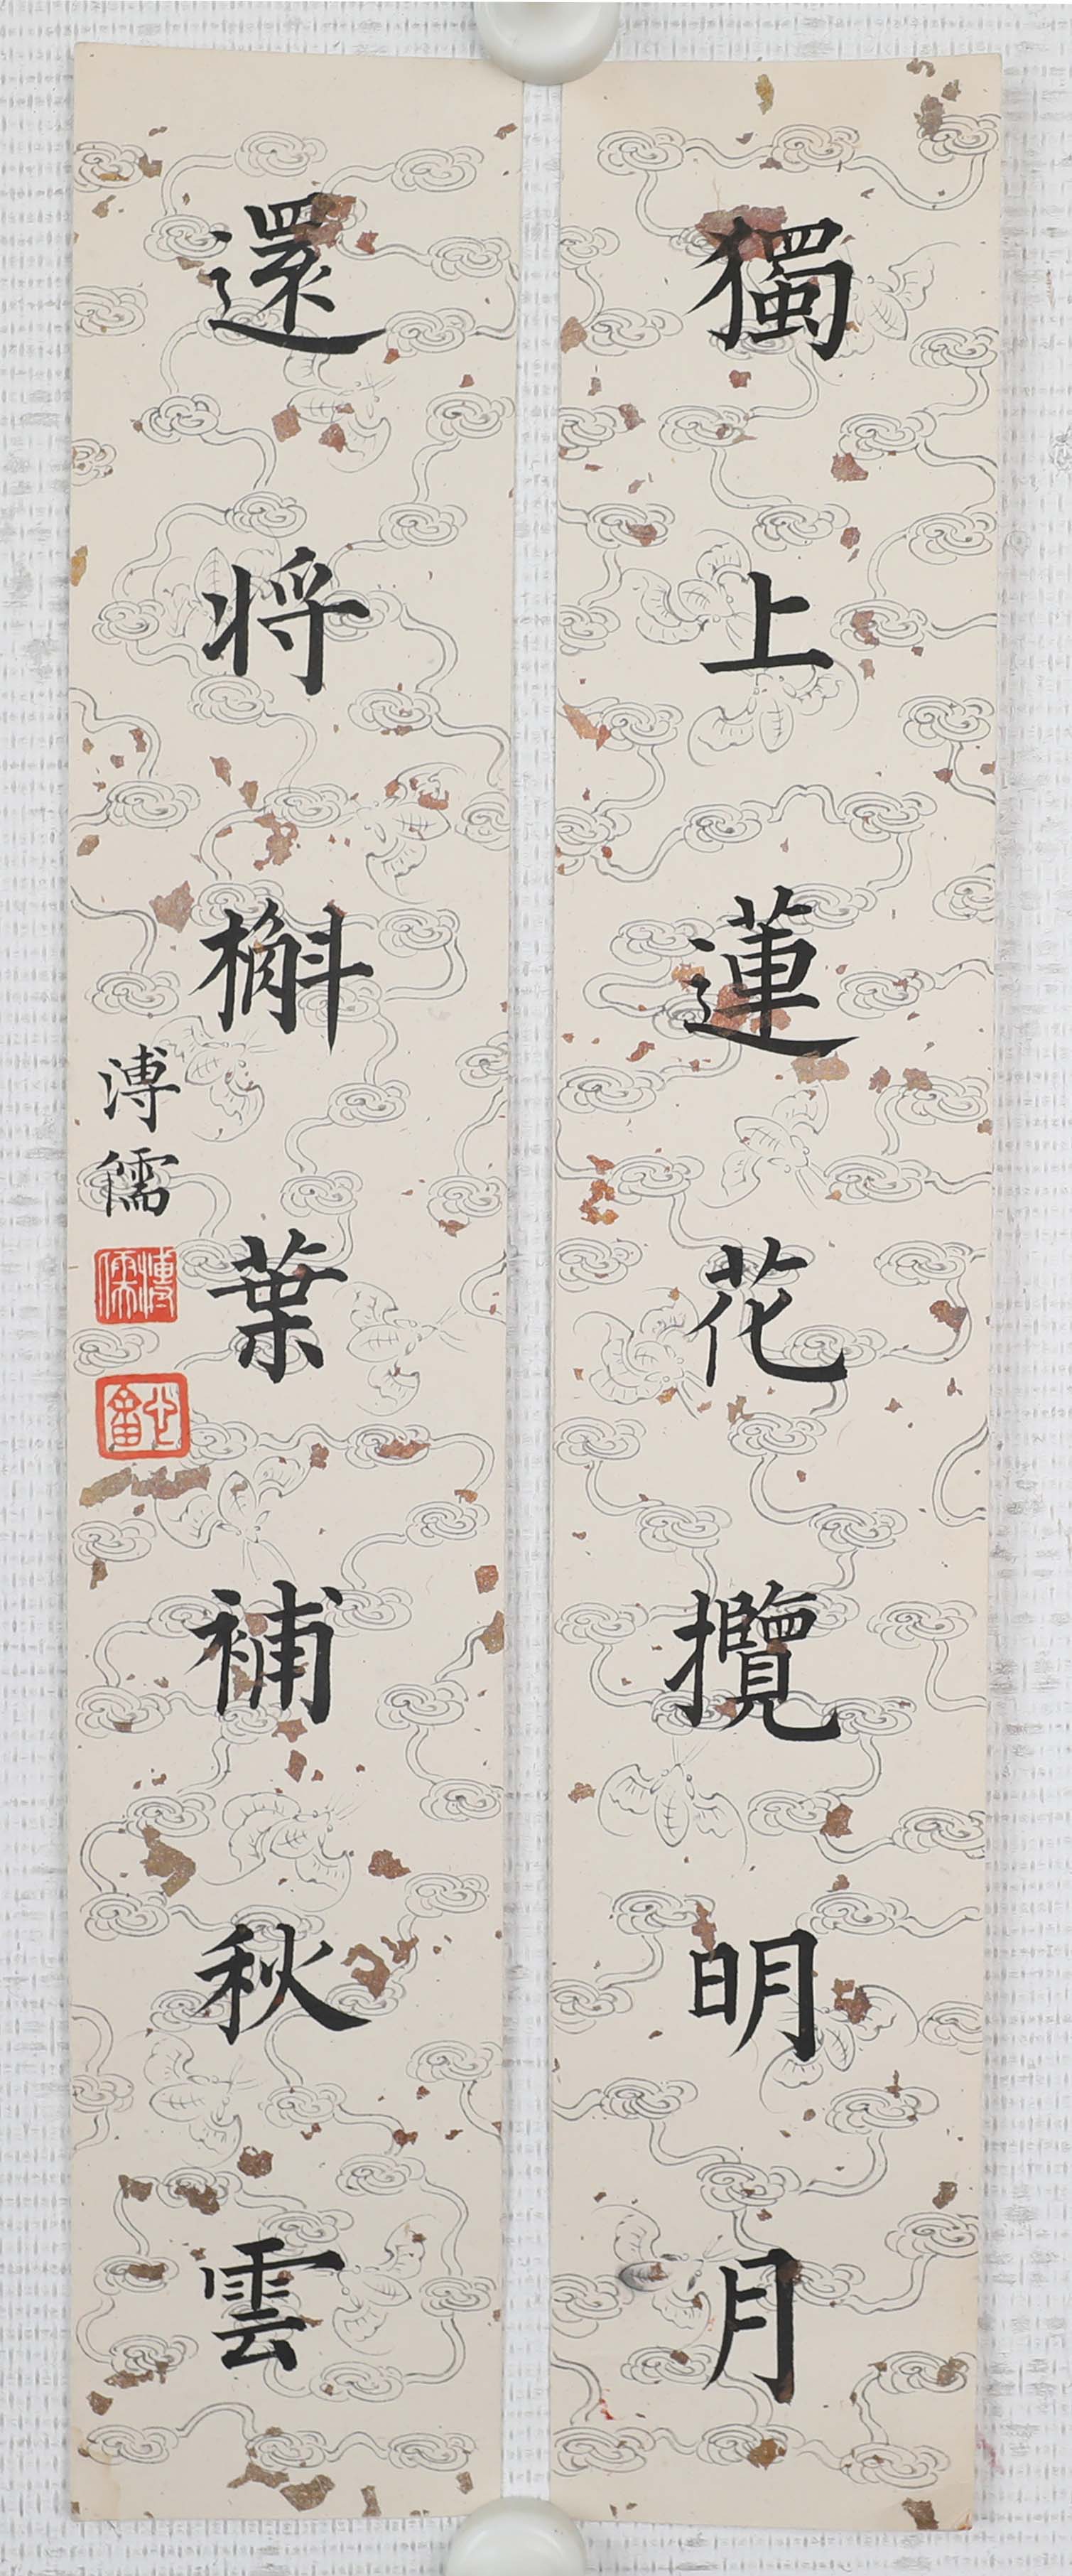 獨上蓮花攬明月
還將槲葉補秋雲
溥儒
溥儒
心畬